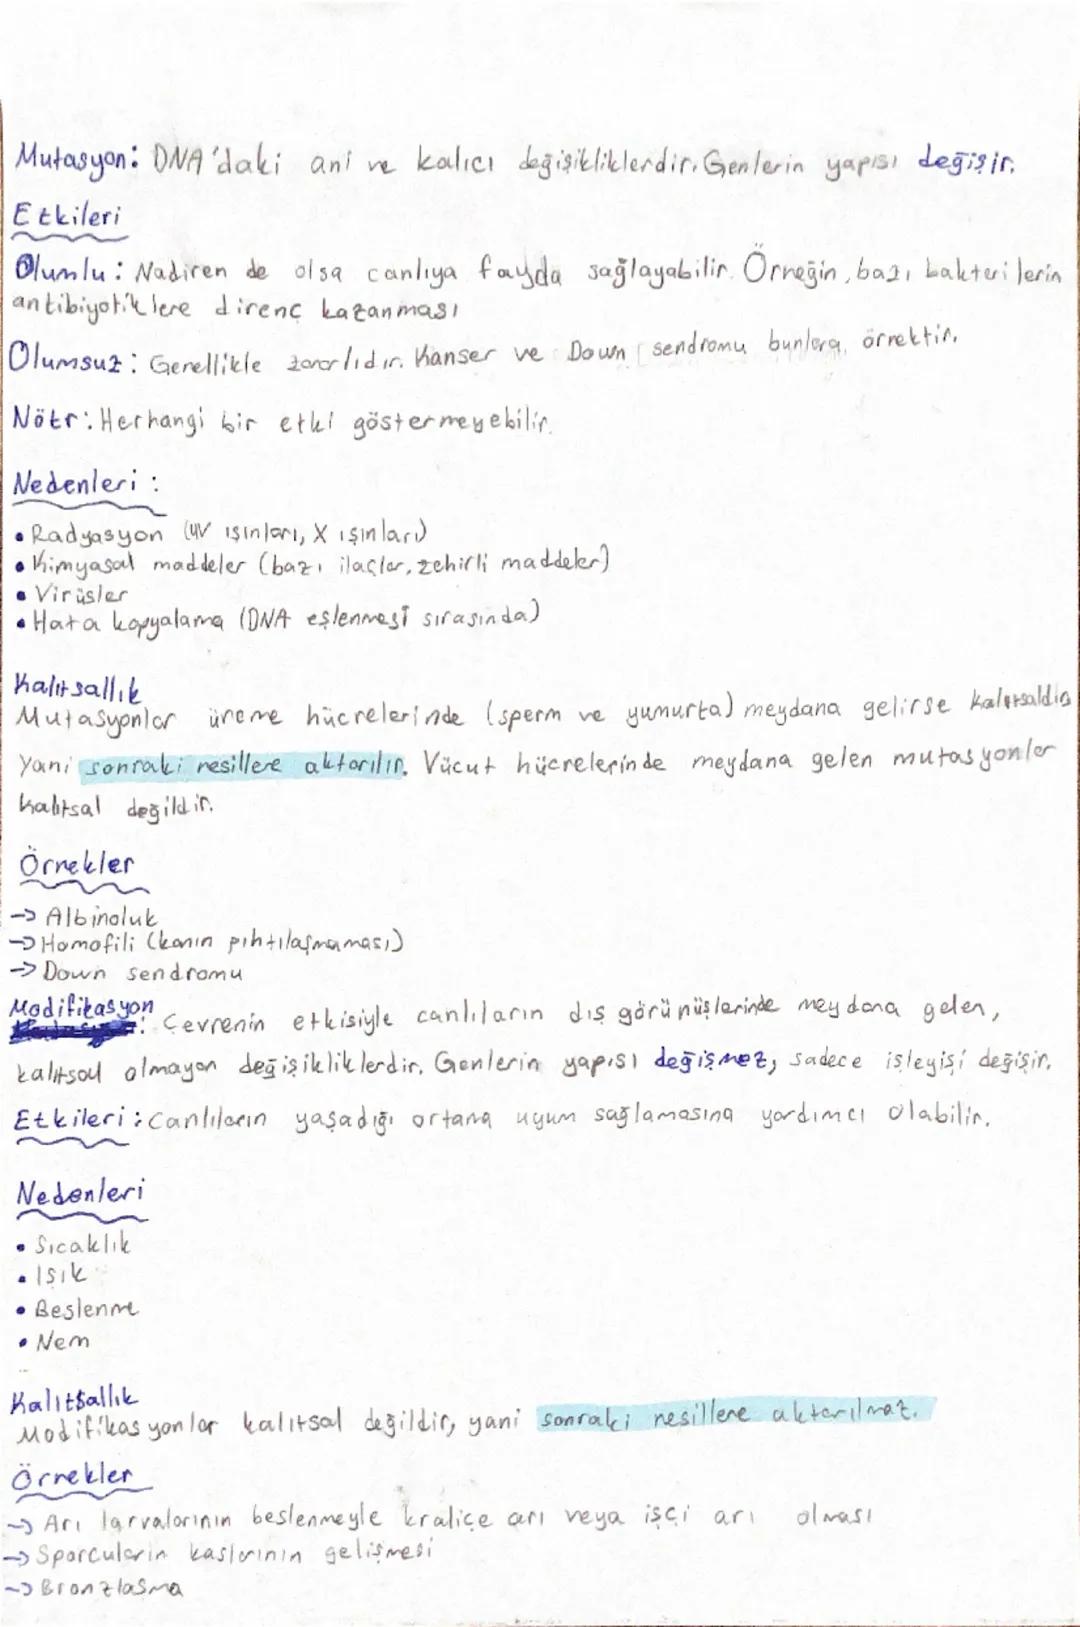 Mutasyon: DNA'daki ani ve kalıcı değişikliklerdir. Genlerin yapısı değişir.
Etkileri
Olumlu: Nadiren de olsa canlıya fayda sağlayabilir. Örneğin, bazı bakterilerin
antibiyotiklere direnç kazanması
Olumsuz: Genellikle zararlıdır. Kanser ve Down sendromu bunlara örnektir.
Nötr: Herhangi bir etki göstermeyebilir.
Nedenleri:
• Radyasyon (UV ışınları, X ışınları)
• Kimyasal maddeler (bazı ilaçlar, zehirli maddeler)
• Virüsler
• Hata kopyalama (DNA eşlenmesi sırasında)
Kalıtsallık
Mutasyonlar üreme hücrelerinde (sperm ve yumurta) meydana gelirse kalıtsaldır
Yani sonraki nesillere aktarılır. Vücut hücrelerinde meydana gelen mutasyonlar
kalıtsal değildir.
Örnekler
-> Albinoluk
-> Homofili (kanın pıhtılaşmaması)
-> Down sendromu
Modifikasyon: Çevrenin etkisiyle canlıların dış görünüşlerinde meydana gelen,
kalıtsal olmayan değişikliklerdir. Genlerin yapısı değişmez, sadece işleyişi değişir.
Etkileri: Canlıların yaşadığı ortama uyum sağlamasına yardımcı olabilir.
Nedenleri
• Sıcaklık
• Işık
• Beslenme
• Nem
Kalıtsallık
Modifikasyonlar kalıtsal değildir, yani sonraki nesillere aktarılmaz.
Örnekler
-> Arı larvalarının beslenmeyle kraliçe arı veya işçi arı olması
-> Sporcuların kaslarının gelişmesi
-> Bronzlaşma